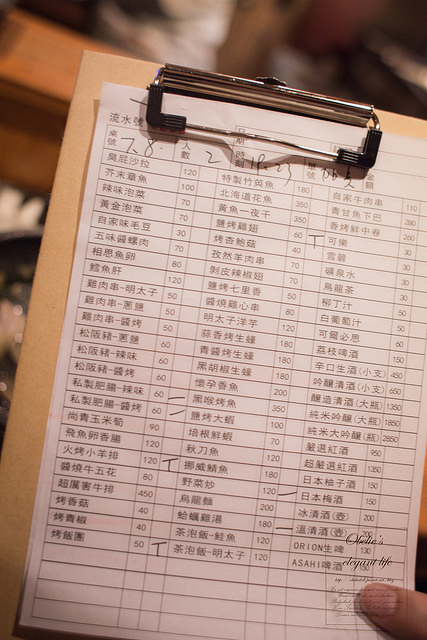 流水號
桌號 7.8. 人數 2 日期時刻 18:23 單號 金額
臭屁沙拉 120
芥末章魚 100
辣味泡菜 70
黃金泡菜 70
自家味毛豆 30
五味醬螺肉 70
相思魚卵 80
鱈魚肝 120
雞肉串-明太子 50
雞肉串-蔥鹽 50
雞肉串-醬烤 50
松阪豬-蔥鹽
松阪豬-辣味 60
松阪豬-醬烤 60
私製肥腸-辣味 60
私製肥腸-醬烤 60
尚青玉米筍 90
飛魚卵香腸 120
火烤小羊排 120
醬燒牛五花 80
超厲害牛排 450
烤香菇 40
烤青椒 40
烤飯團 50
特製竹筴魚 180
北海道花魚 350
黃魚一夜干 350
鹽烤雞翅 60
烤杏鮑菇 40
孜然羊肉串 70
剝皮辣椒雞翅 70
鹽烤七里香 50
醬燒雞心串 50
明太子洋芋 80
蒜香烤生蠔
青醬烤生蠔 180
黑胡椒生蠔 180
懷孕香魚
黑喉烤魚 350
鹽烤大蝦 100
培根鮮蝦 70
秋刀魚 120
挪威鯖魚 180
野菜炒 120
烏龍麵
蛤蠣雞湯 180
茶泡飯-鮭魚 120
茶泡飯-明太子 120
自家牛肉串 110
青甘魚下巴 280
香烤鮮中卷 260
可樂 30
雪碧 30
礦泉水 30
烏龍茶 30
柳丁汁 50
白葡萄汁 50
可爾必思 60
荔枝啤酒 150
辛口生酒(小支) 450
吟釀清酒(小支) 650
釀造清酒(大瓶) 1350
純米吟釀(大瓶) 1850
純米大吟釀(瓶) 2850
嚴選紅酒 950
超嚴選紅酒 1350
日本柚子酒 150
日本梅酒 150
冰清酒(壺) 200
溫清酒(壺) 200
ORION生啤 130
ASAHI啤酒
Obelie's
elegant life